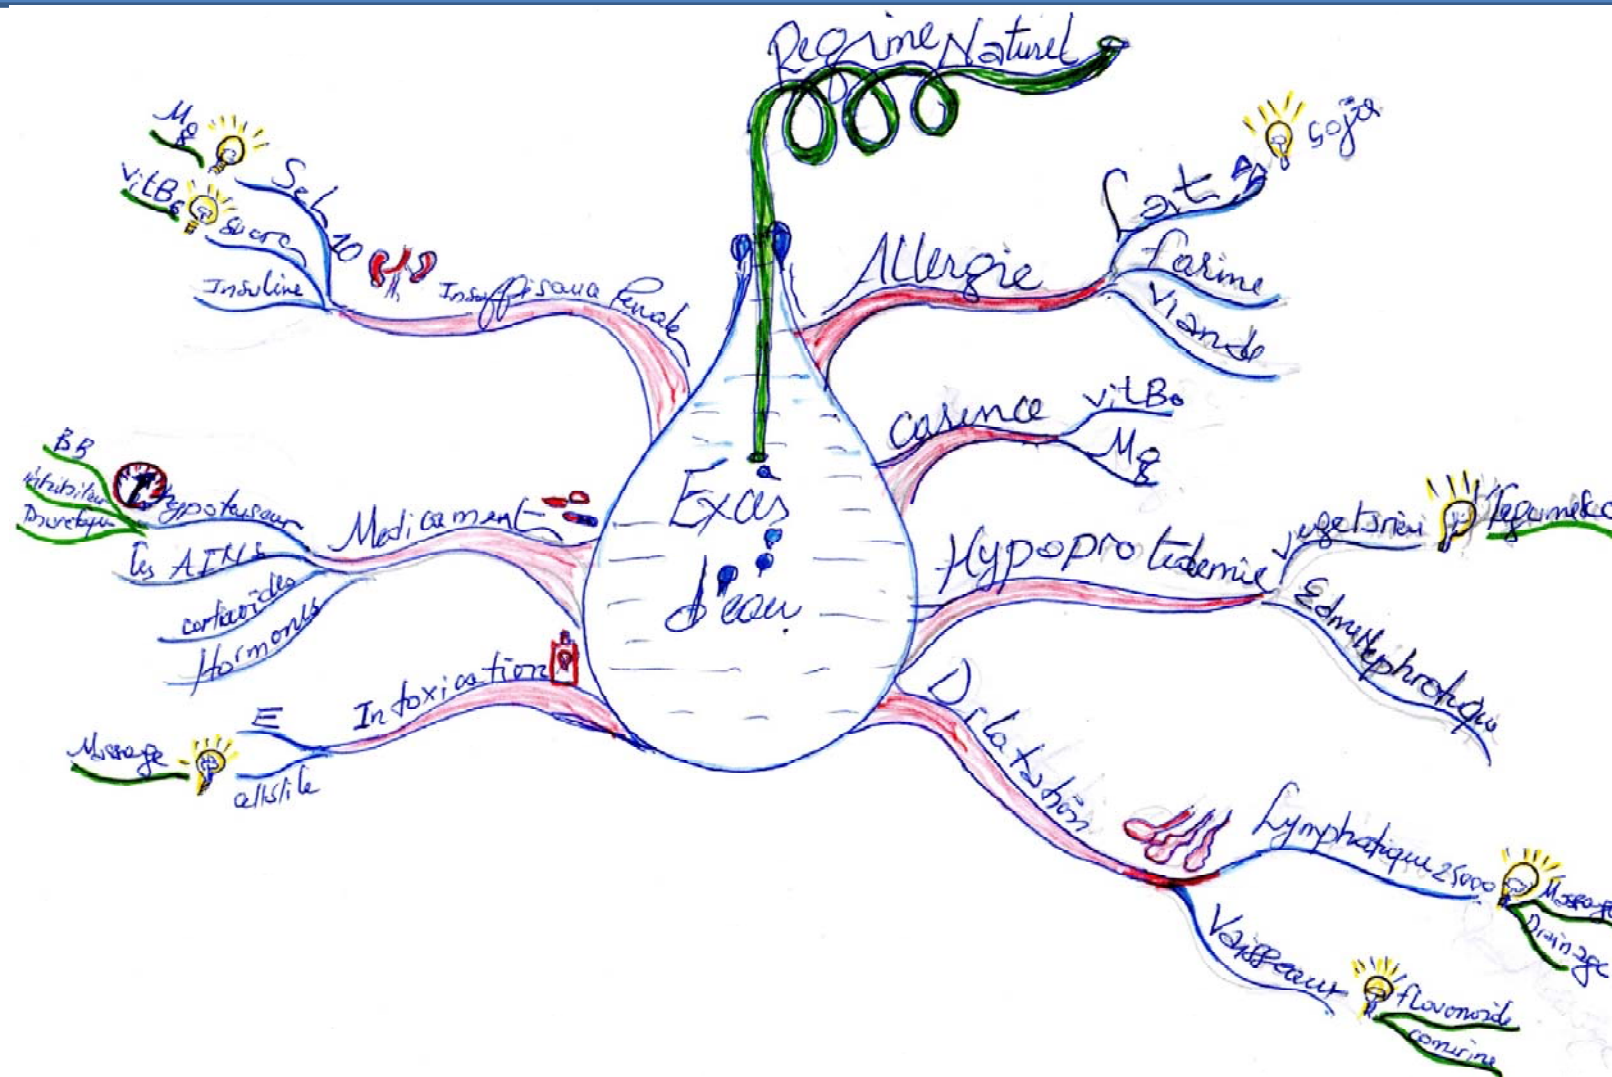 Regime Naturel
Exces
d'eau
Allergie
Lait
soja
farime
Viande
carence
vitB6
Mg
Hypoprotidemie
vegetarien
legumes
Edm Nephrotique
Dilatation
Lymphatique 25000
Massage
Drainage
Vaisseaux
flavonoide
Insuffisance Renale
Sel 10
Mg
sucre
vitB6
Insuline
Medicament
hypotenseur
BB
inhibiteur
Diuretique
les AINS
corticoides
Hormones
Intoxication
E
cellulile
Massage